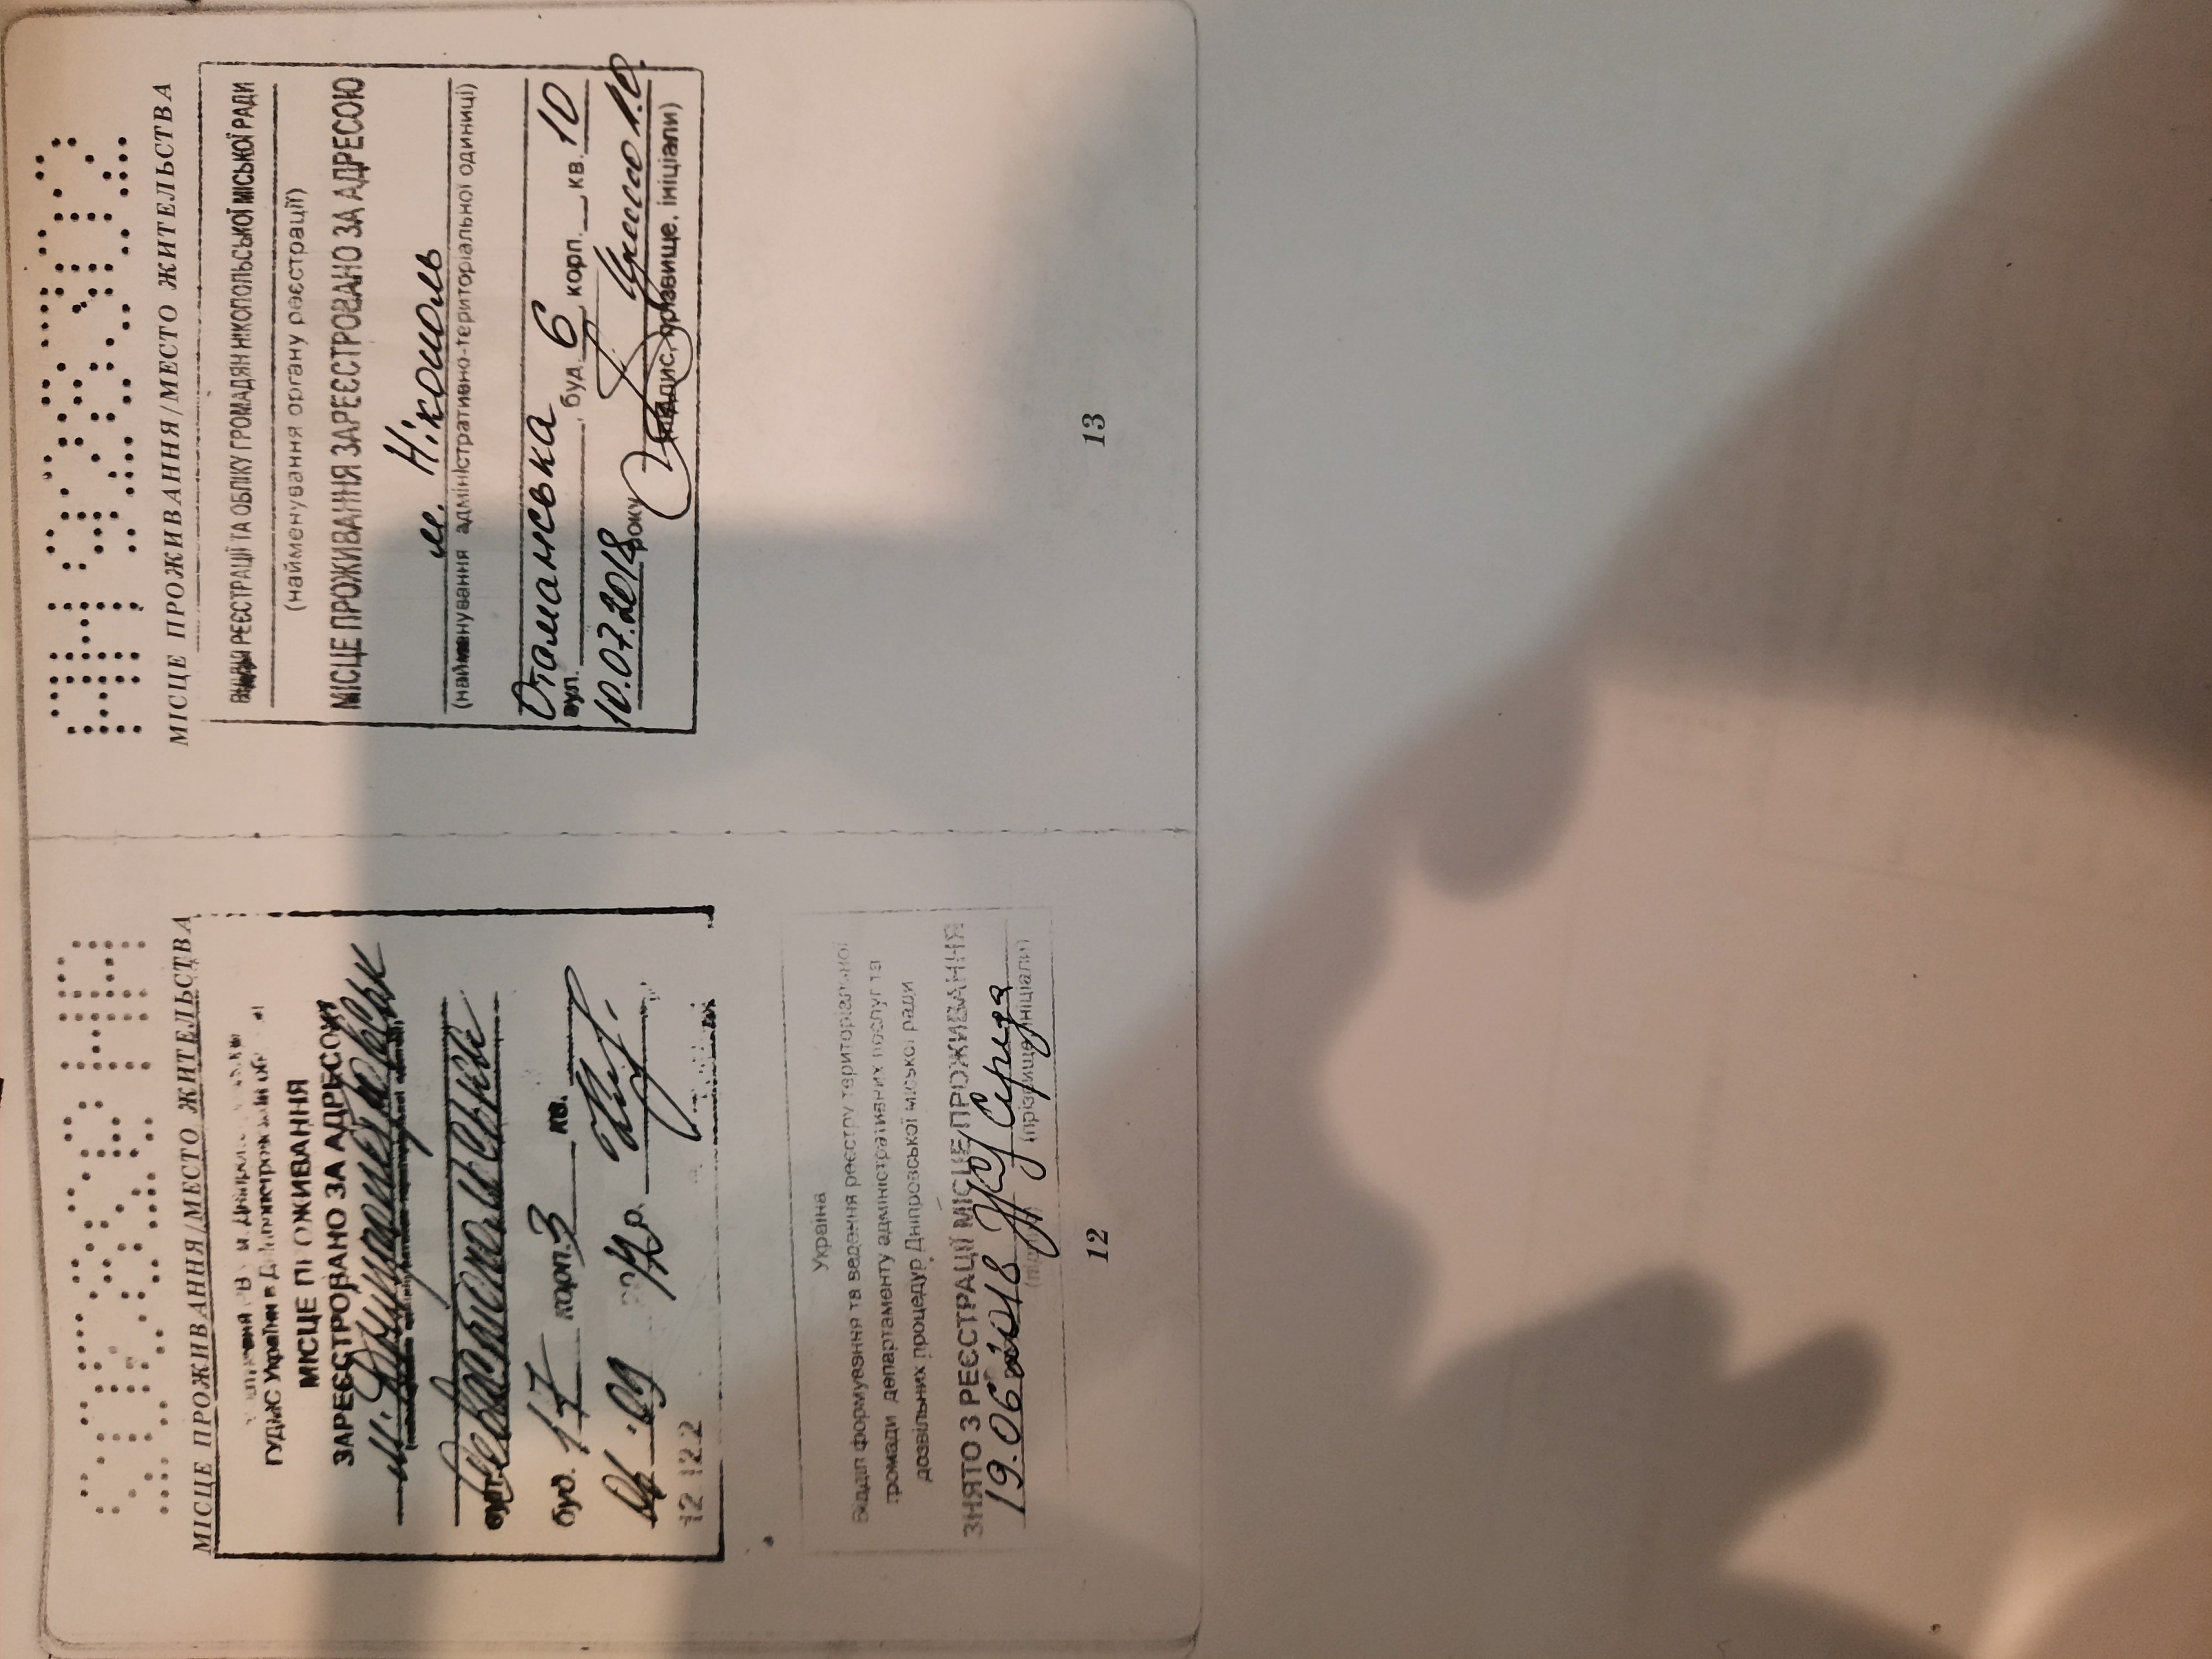 МІСЦЕ ПРОЖИВАННЯ/МЕСТО ЖИТЕЛЬСТВА
ГУДМС України в Дніпропетровській
МІСЦЕ ПРОЖИВАННЯ
ЗАРЕЄСТРОВАНО ЗА АДРЕСОЮ
м. Дніпропетровськ
вул. Севастопольська
буд. 17 корп. 3 кв.
06 09 2012р.
12 12.2
Україна
Відділ формування та ведення реєстру територіальної
громади департаменту адміністративних послуг та
дозвільних процедур Дніпровської міської ради
ЗНЯТО З РЕЄСТРАЦІЇ МІСЦЕ ПРОЖИВАННЯ
19.06 2018 Середа
(підпис) (прізвище, ініціали)
12
АН 928302
МІСЦЕ ПРОЖИВАННЯ/МЕСТО ЖИТЕЛЬСТВА
РЕЄСТРАЦІЇ ТА ОБЛІКУ ГРОМАДЯН НІКОПОЛЬСЬКОЇ МІСЬКОЇ РАДИ
(найменування органу реєстрації)
МІСЦЕ ПРОЖИВАННЯ ЗАРЕЄСТРОВАНО ЗА АДРЕСОЮ
м. Нікополь
(найменування адміністративно-територіальної одиниці)
Отаманська
вул. , буд. 6, корп. , кв. 10
10.07.2018 року
(підпис, прізвище, ініціали)
13